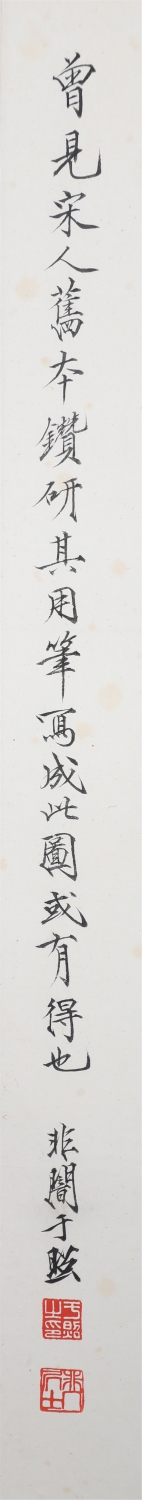 曾見宋人舊本鑽研其用筆寫成此圖或有得也 非闇于照
于照之印